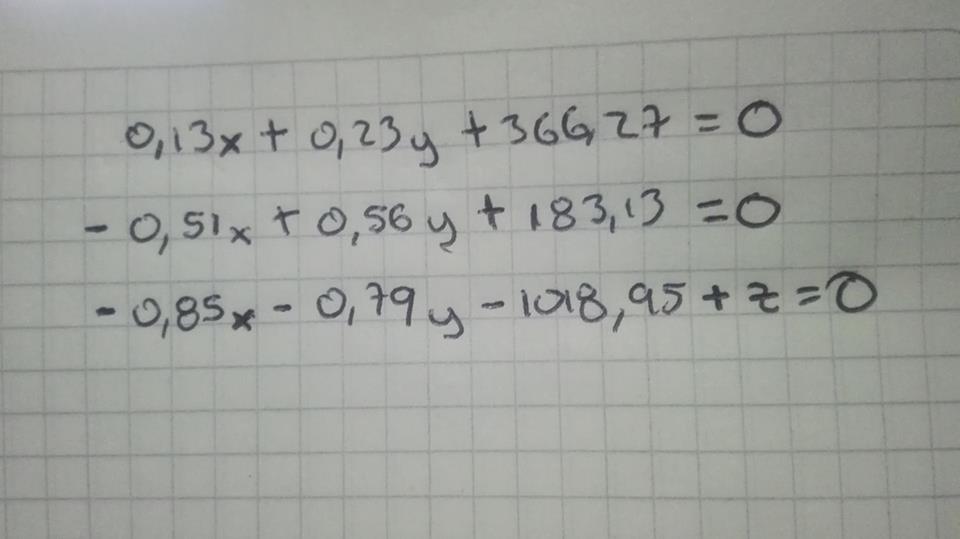 0,13x + 0,23y + 366,27 = 0
- 0,51x + 0,56y + 183,13 = 0
- 0,85x - 0,79y - 1018,95 + z = 0